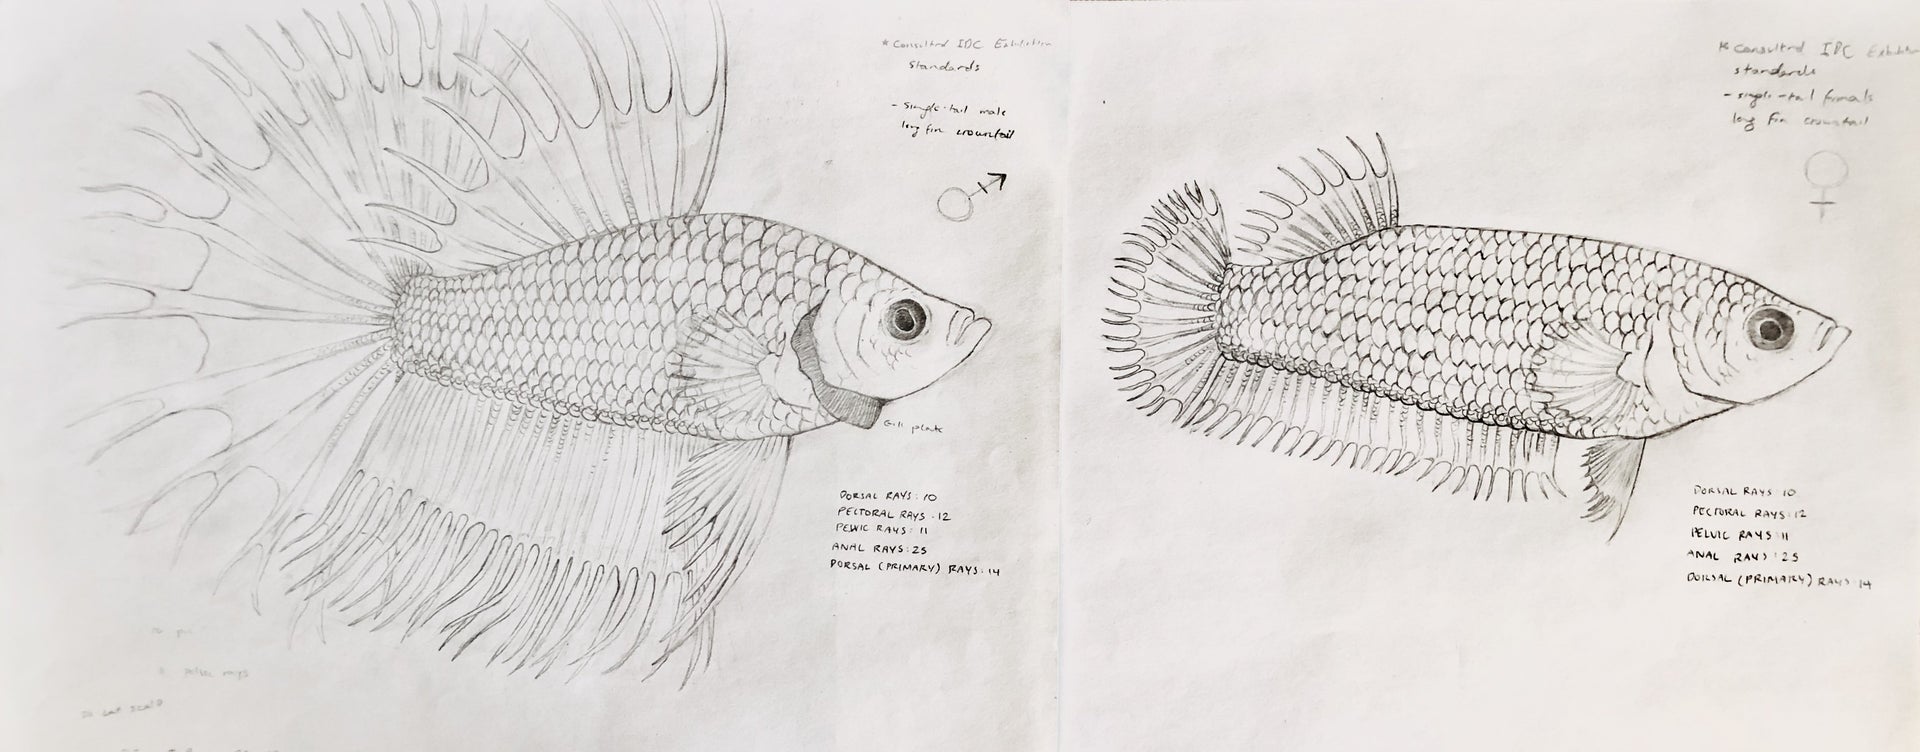 * Consulted IBC Exhibition
Standards
- Single-tail male
long fin crowntail
Gill plate
DORSAL RAYS: 10
PECTORAL RAYS: 12
PELVIC RAYS: 11
ANAL RAYS: 25
DORSAL (PRIMARY) RAYS: 14
pelvic rays
* Consulted IBC
standards
- single-tail female
long fin crowntail
DORSAL RAYS: 10
PECTORAL RAYS: 12
PELVIC RAYS: 11
ANAL RAYS: 25
DORSAL (PRIMARY) RAYS: 14